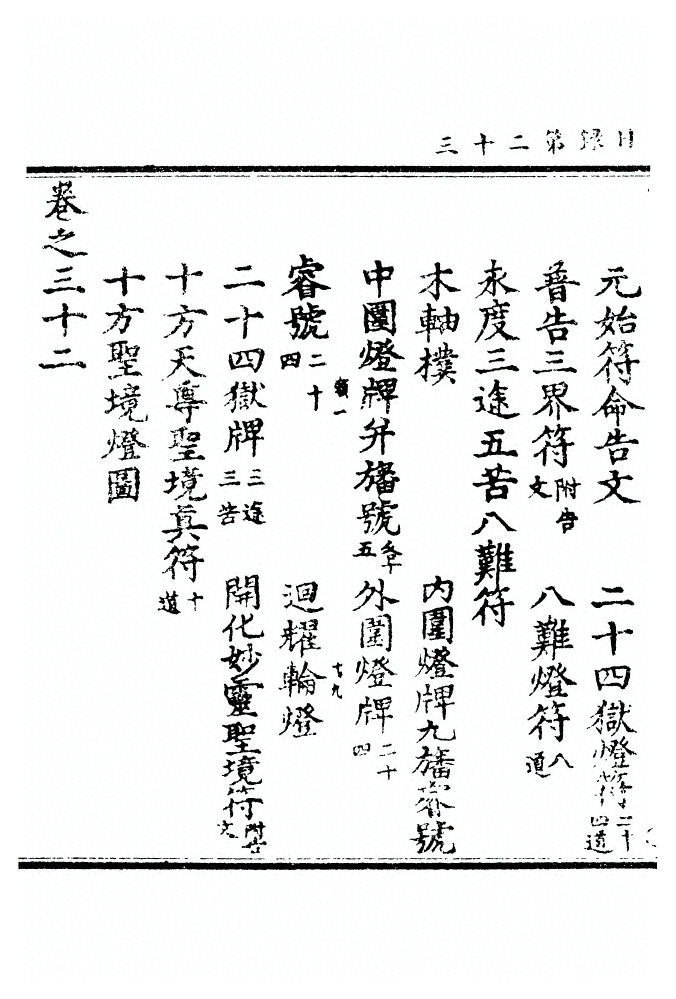 目錄第二十三
元始符命告文 二十四獄燈符二十四道
普告三界符附告文 八難燈符八道
永度三途五苦八難符
木軸撲 內圍燈牌九旛睿號
中圍燈牌并旛號 五 外圍燈牌二十四
睿號二十四 迴耀輪燈
二十四獄牌三途三苦 開化妙靈聖境符附告文
十方天尊聖境真符十道
十方聖境燈圖
卷之三十二